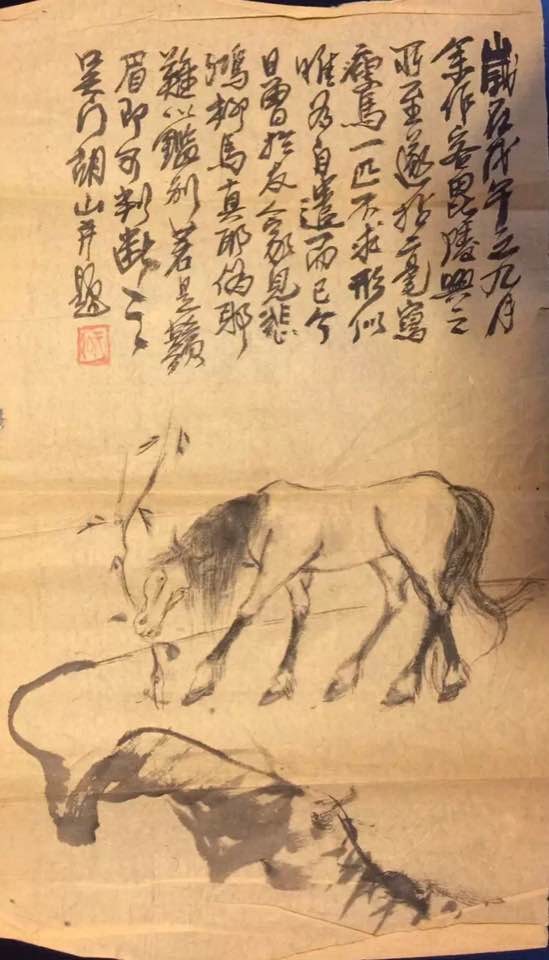 歲在戊午之九月
余作客毘陵興之
所至遂拈毫寫
瘦馬一匹不求形似
惟為自遣而已今
日曾於友人家見悲
鴻柳馬真耶偽耶
難以鑑別若是鬚
眉即可判斷云云
吳門胡山弁題